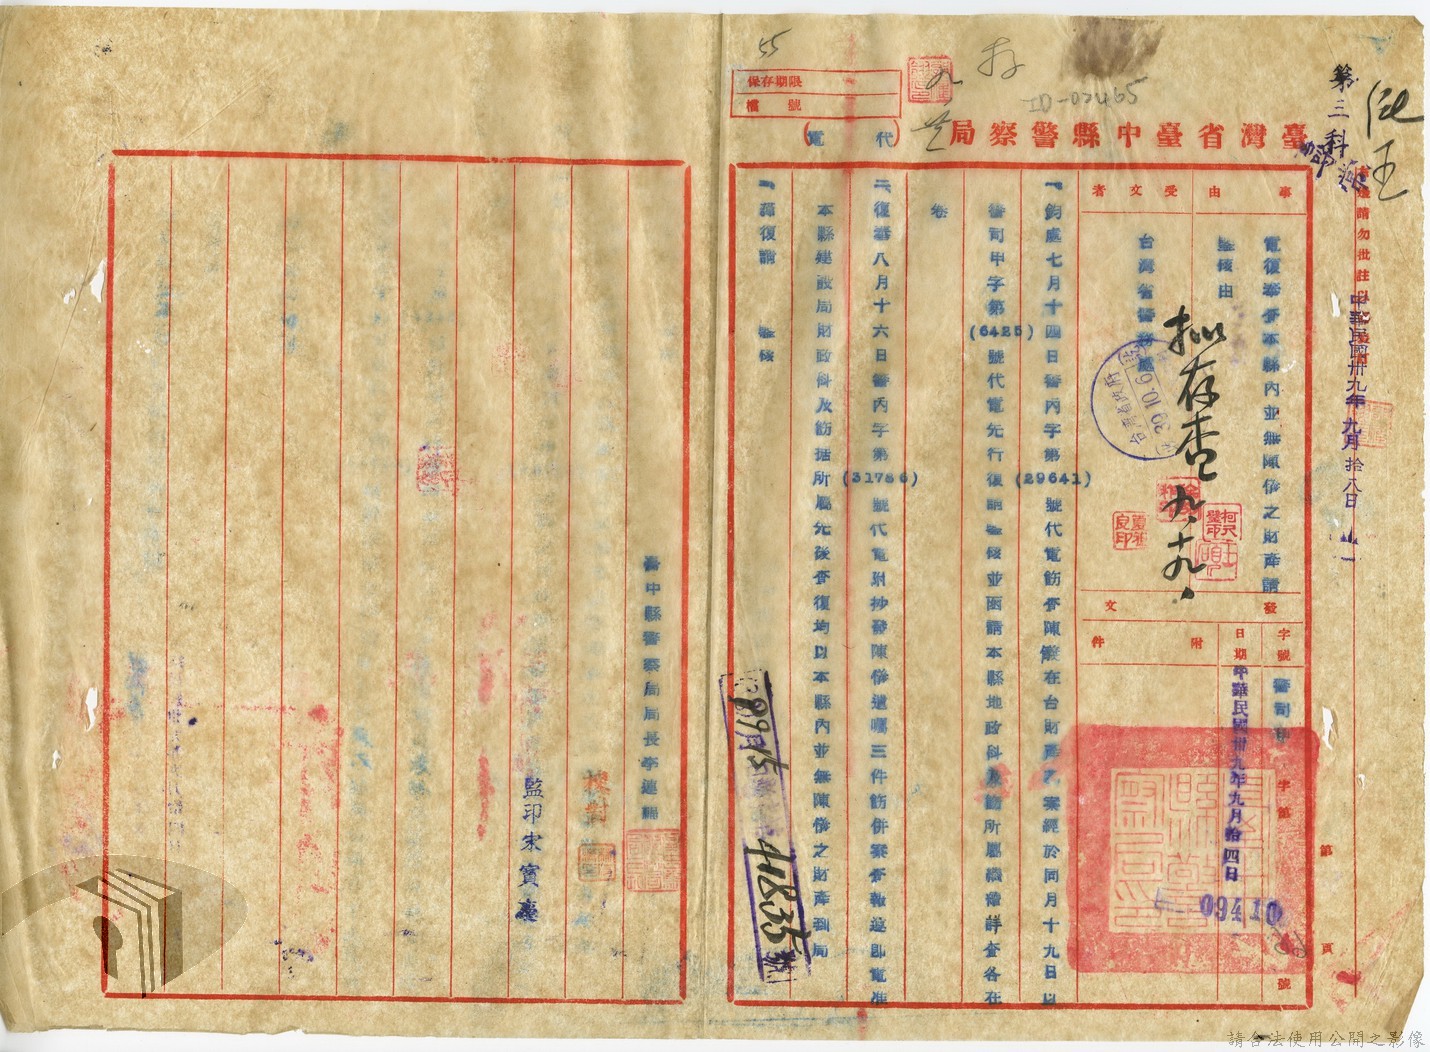 第三科
中華民國卅九年九月拾八日
臺灣省臺中縣警察局
（代電）
保存期限
檔號
存
55
ID-02465
事由
電復奉查本縣內並無陳儀之財產請
鑒核由
受文者
台灣省警務處
擬存查 九、十九、
39.10.6
發文
字號
警司甲字第
09410
號
日期
中華民國卅九年九月拾四日
附件
第頁
一、鈞處七月十四日警內字第(29641)號代電飭查陳儀在台財產乙案經於同月十九日以
警司甲字第(6425)號代電先行復請鑒核並函請本縣地政科及飭所屬機構詳查各在
卷
二、復奉八月十六日警內字第(31786)號代電附抄發陳儀遺囑三件飭併案查報遵即電准
本縣建設局財政科及飭据所屬先後查復均以本縣內並無陳儀之財產到局
三、謹復請 鑒核
41835
臺中縣警察局局長李連福
校對
監印宋寶慶
請合法使用公開之影像